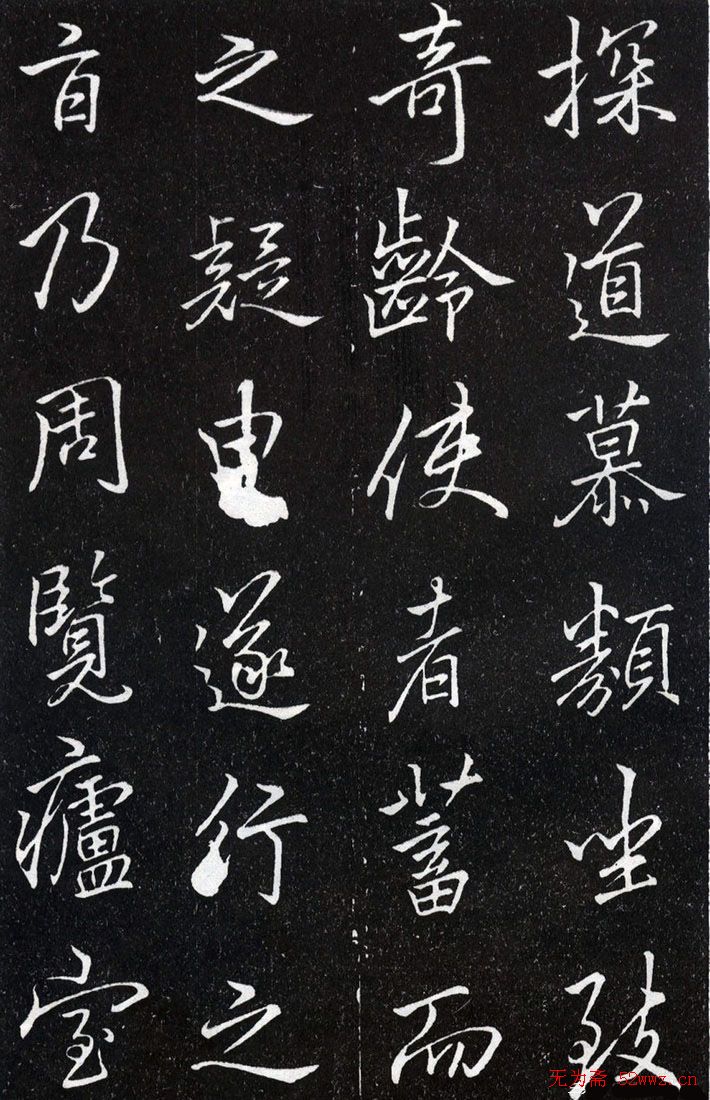 探道慕類坐致
奇齡使者蓄而
之疑申遂行之
乃周覽廬室
无为斋.52wwz.cn